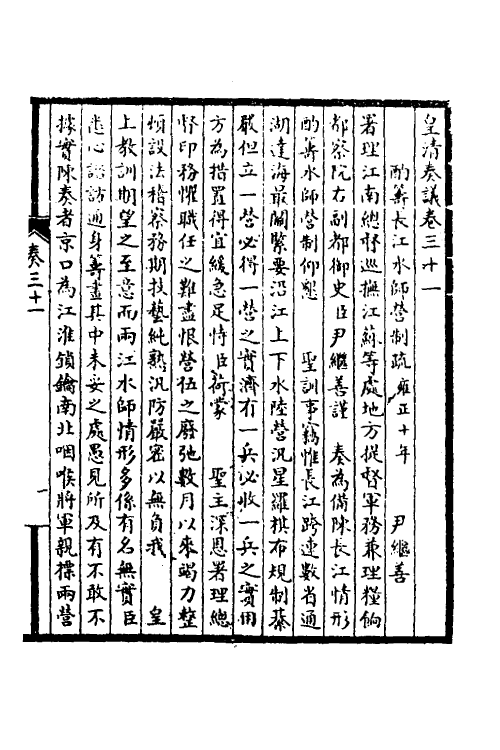 皇清奏議卷三十一
酌籌長江水師營制疏雍正十年　尹繼善
署理江南總督巡撫江蘇等處地方提督軍務兼理糧餉
都察院右副都御史臣尹繼善謹　奏為備陳長江情形
酌籌水師營制仰懇　聖訓事竊惟長江跨連數省通
湖達海最關緊要沿江上下水陸營汛星羅棋布規制綦
嚴但立一營必得一營之實濟有一兵必收一兵之實用
方為措置得宜緩急足恃臣荷蒙　聖主深恩署理總
督印務懼職任之難盡恨營伍之廢弛數月以來竭力整
頓設法稽察務期技藝純熟汛防嚴密以無負我　皇
上教訓期望之至意而兩江水師情形多係有名無實臣
悉心諮訪通身籌畫其中未妥之處愚見所及有不敢不
據實陳奏者京口為江淮鎖鑰南北咽喉將軍親標兩營
奏三十一
一